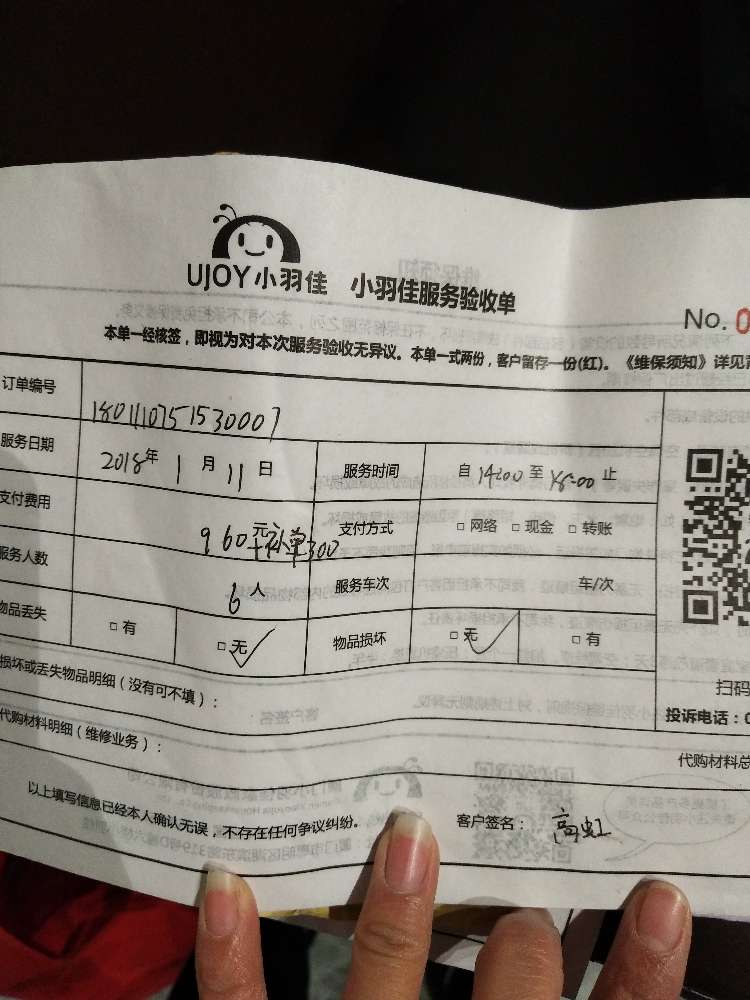 UJOY小羽佳 小羽佳服务验收单
No. 0
本单一经核签，即视为对本次服务验收无异议。本单一式两份，客户留存一份(红)。《维保须知》详见
订单编号 1801110751530007
服务日期 2018年 1月 11日 服务时间 自14:00至18:00止
支付费用 960元+补单300 支付方式 □网络 □现金 □转账
服务人数 6人 服务车次 车/次
物品丢失 □有 □无✓ 物品损坏 □无✓ □有
损坏或丢失物品明细（没有可不填）：
扫码
投诉电话：0
代购材料明细（维修业务）：
代购材料总
以上填写信息已经本人确认无误，不存在任何争议纠纷。 客户签名： 高虹